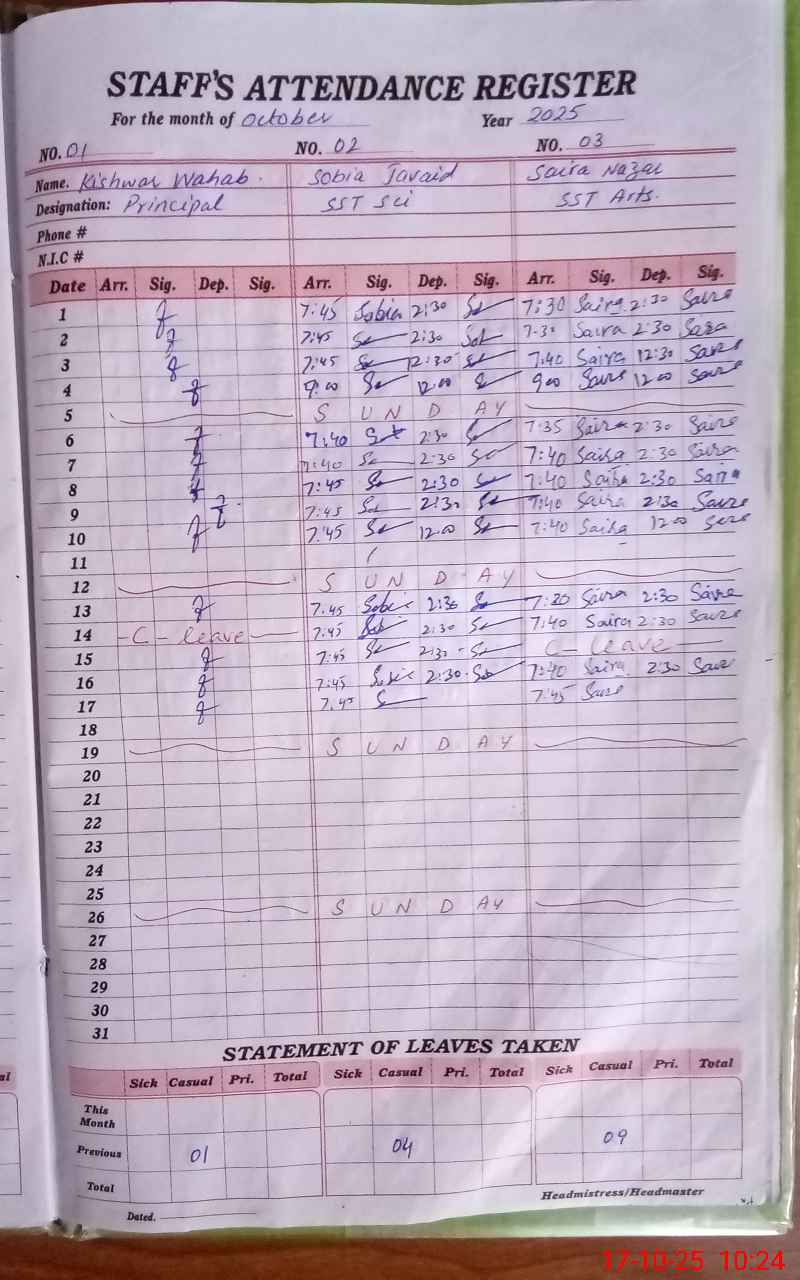 STAFF'S ATTENDANCE REGISTER
For the month of October Year 2025
NO. 01 NO. 02 NO. 03
Name. Kishwar Wahab. Sobia Javaid Saira Nazar
Designation: Principal SST Sci SST Arts.
Phone #
N.I.C #
Date Arr. Sig. Dep. Sig. Arr. Sig. Dep. Sig. Arr. Sig. Dep. Sig.
1 7:45 Sobia 2:30 7:30 Saira 2:30 Saira
2 7:45 2:30 7:30 Saira 2:30 Saira
3 7:45 12:30 7:40 Saira 12:30 Saira
4 9:00 12:00 9:00 Saira 12:00 Saira
5 S U N D A Y
6 7:40 2:30 7:35 Saira 2:30 Saira
7 7:40 2:30 7:40 Saira 2:30 Saira
8 7:45 2:30 7:40 Saira 2:30 Saira
9 7:45 2:30 7:40 Saira 2:30 Saira
10 7:45 12:00 7:40 Saira 12:00 Saira
11
12 S U N D A Y
13 7:45 Sobia 2:30 Saira 2:30 Saira
14 -C- leave 7:45 2:30 7:40 Saira 2:30 Saira
15 7:45 2:30 C- leave
16 7:45 Sobia 2:30 7:40 Saira 2:30 Saira
17 7:45 7:45 Saira
18
19 S U N D A Y
20
21
22
23
24
25
26 S U N D A Y
27
28
29
30
31
STATEMENT OF LEAVES TAKEN
Sick Casual Pri. Total Sick Casual Pri. Total Sick Casual Pri. Total
This Month
Previous 01 04 09
Total
Headmistress/Headmaster
Dated.
17-10-25 10:24